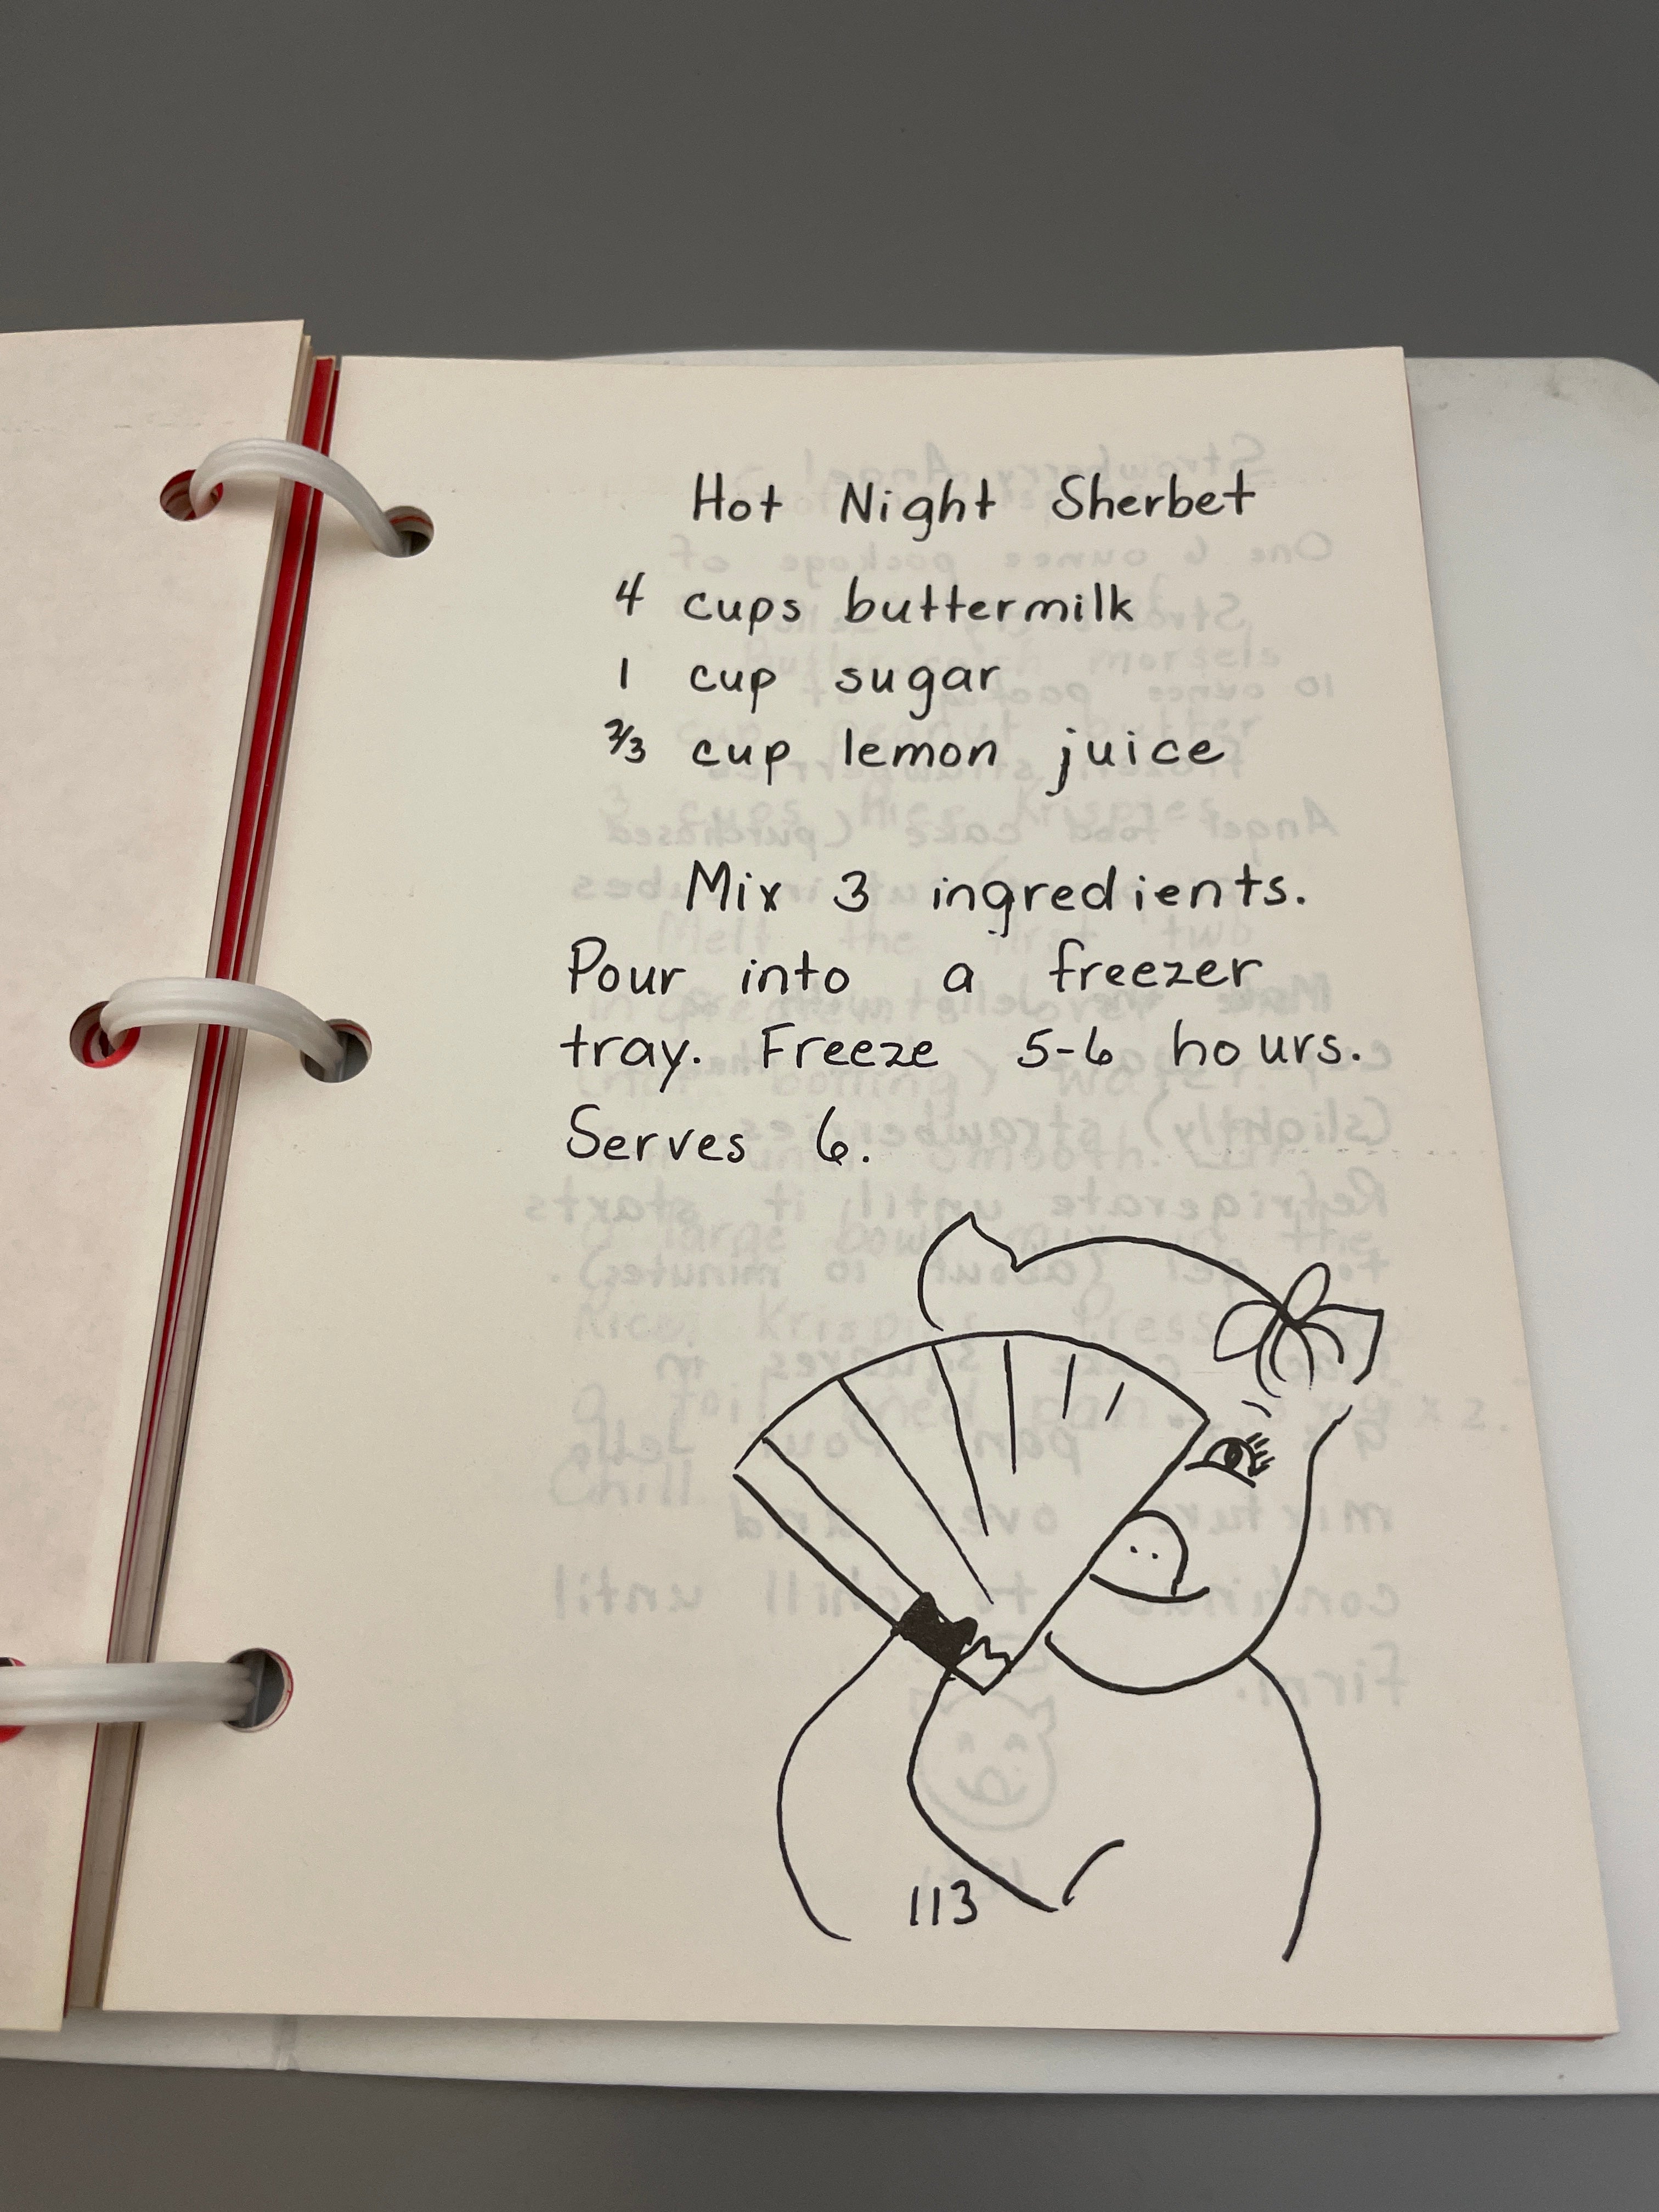 Hot Night Sherbet
4 cups buttermilk
1 cup sugar
2/3 cup lemon juice
Mix 3 ingredients.
Pour into a freezer
tray. Freeze 5-6 hours.
Serves 6.
113